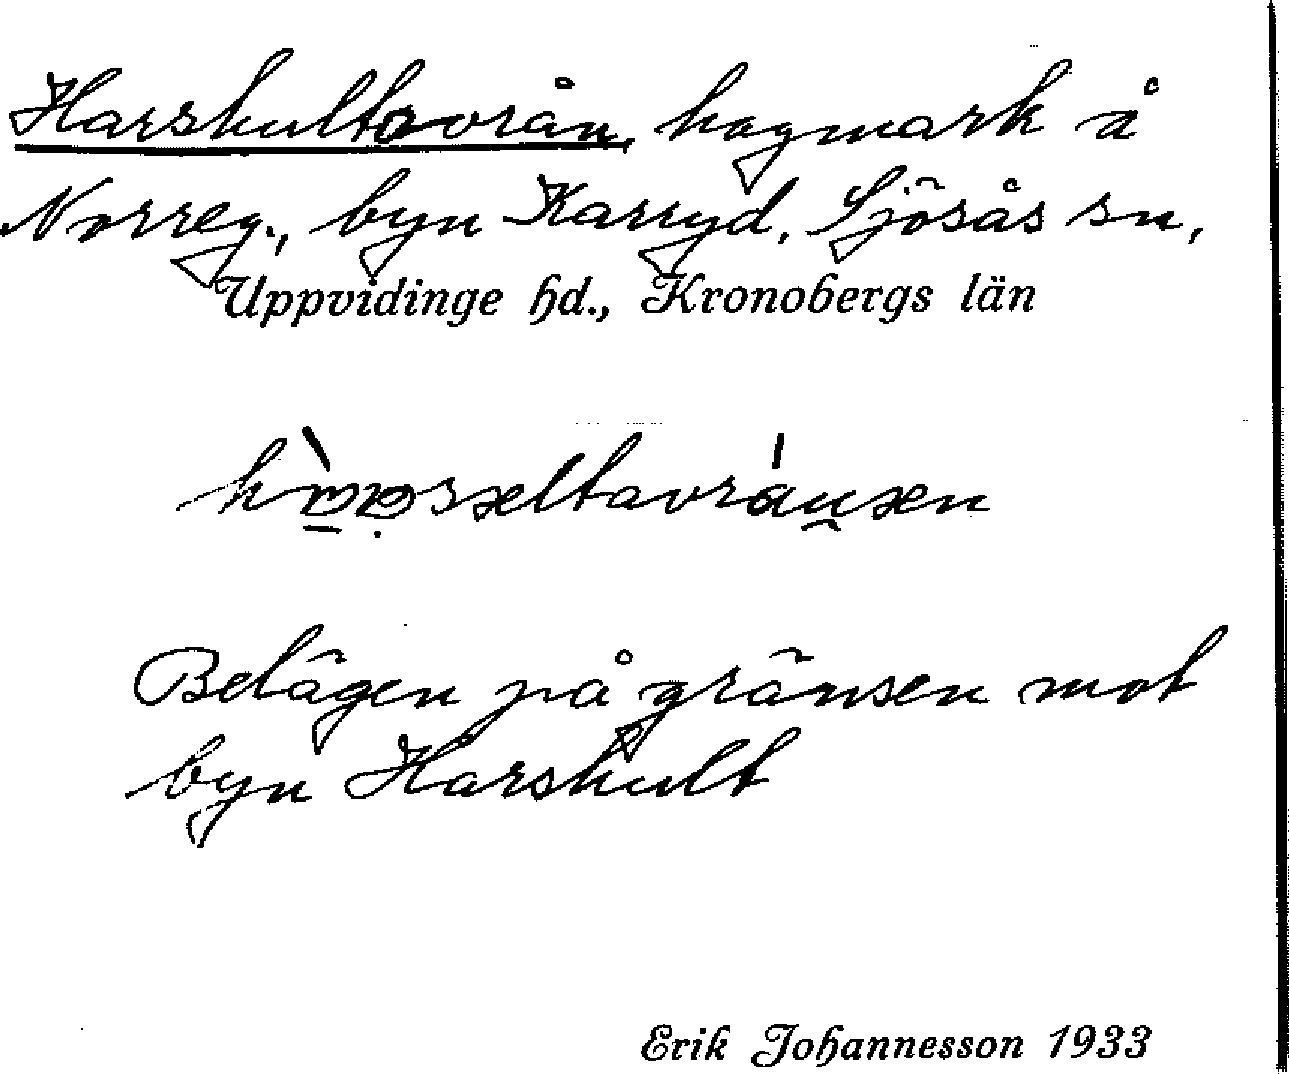 Harshultavrån, hagmark å
Norreg., byn Karryd, Sjösås sn,
Uppvidinge hd., Kronobergs län
Belägen på gränsen mot
byn Harshult
Erik Johannesson 1933